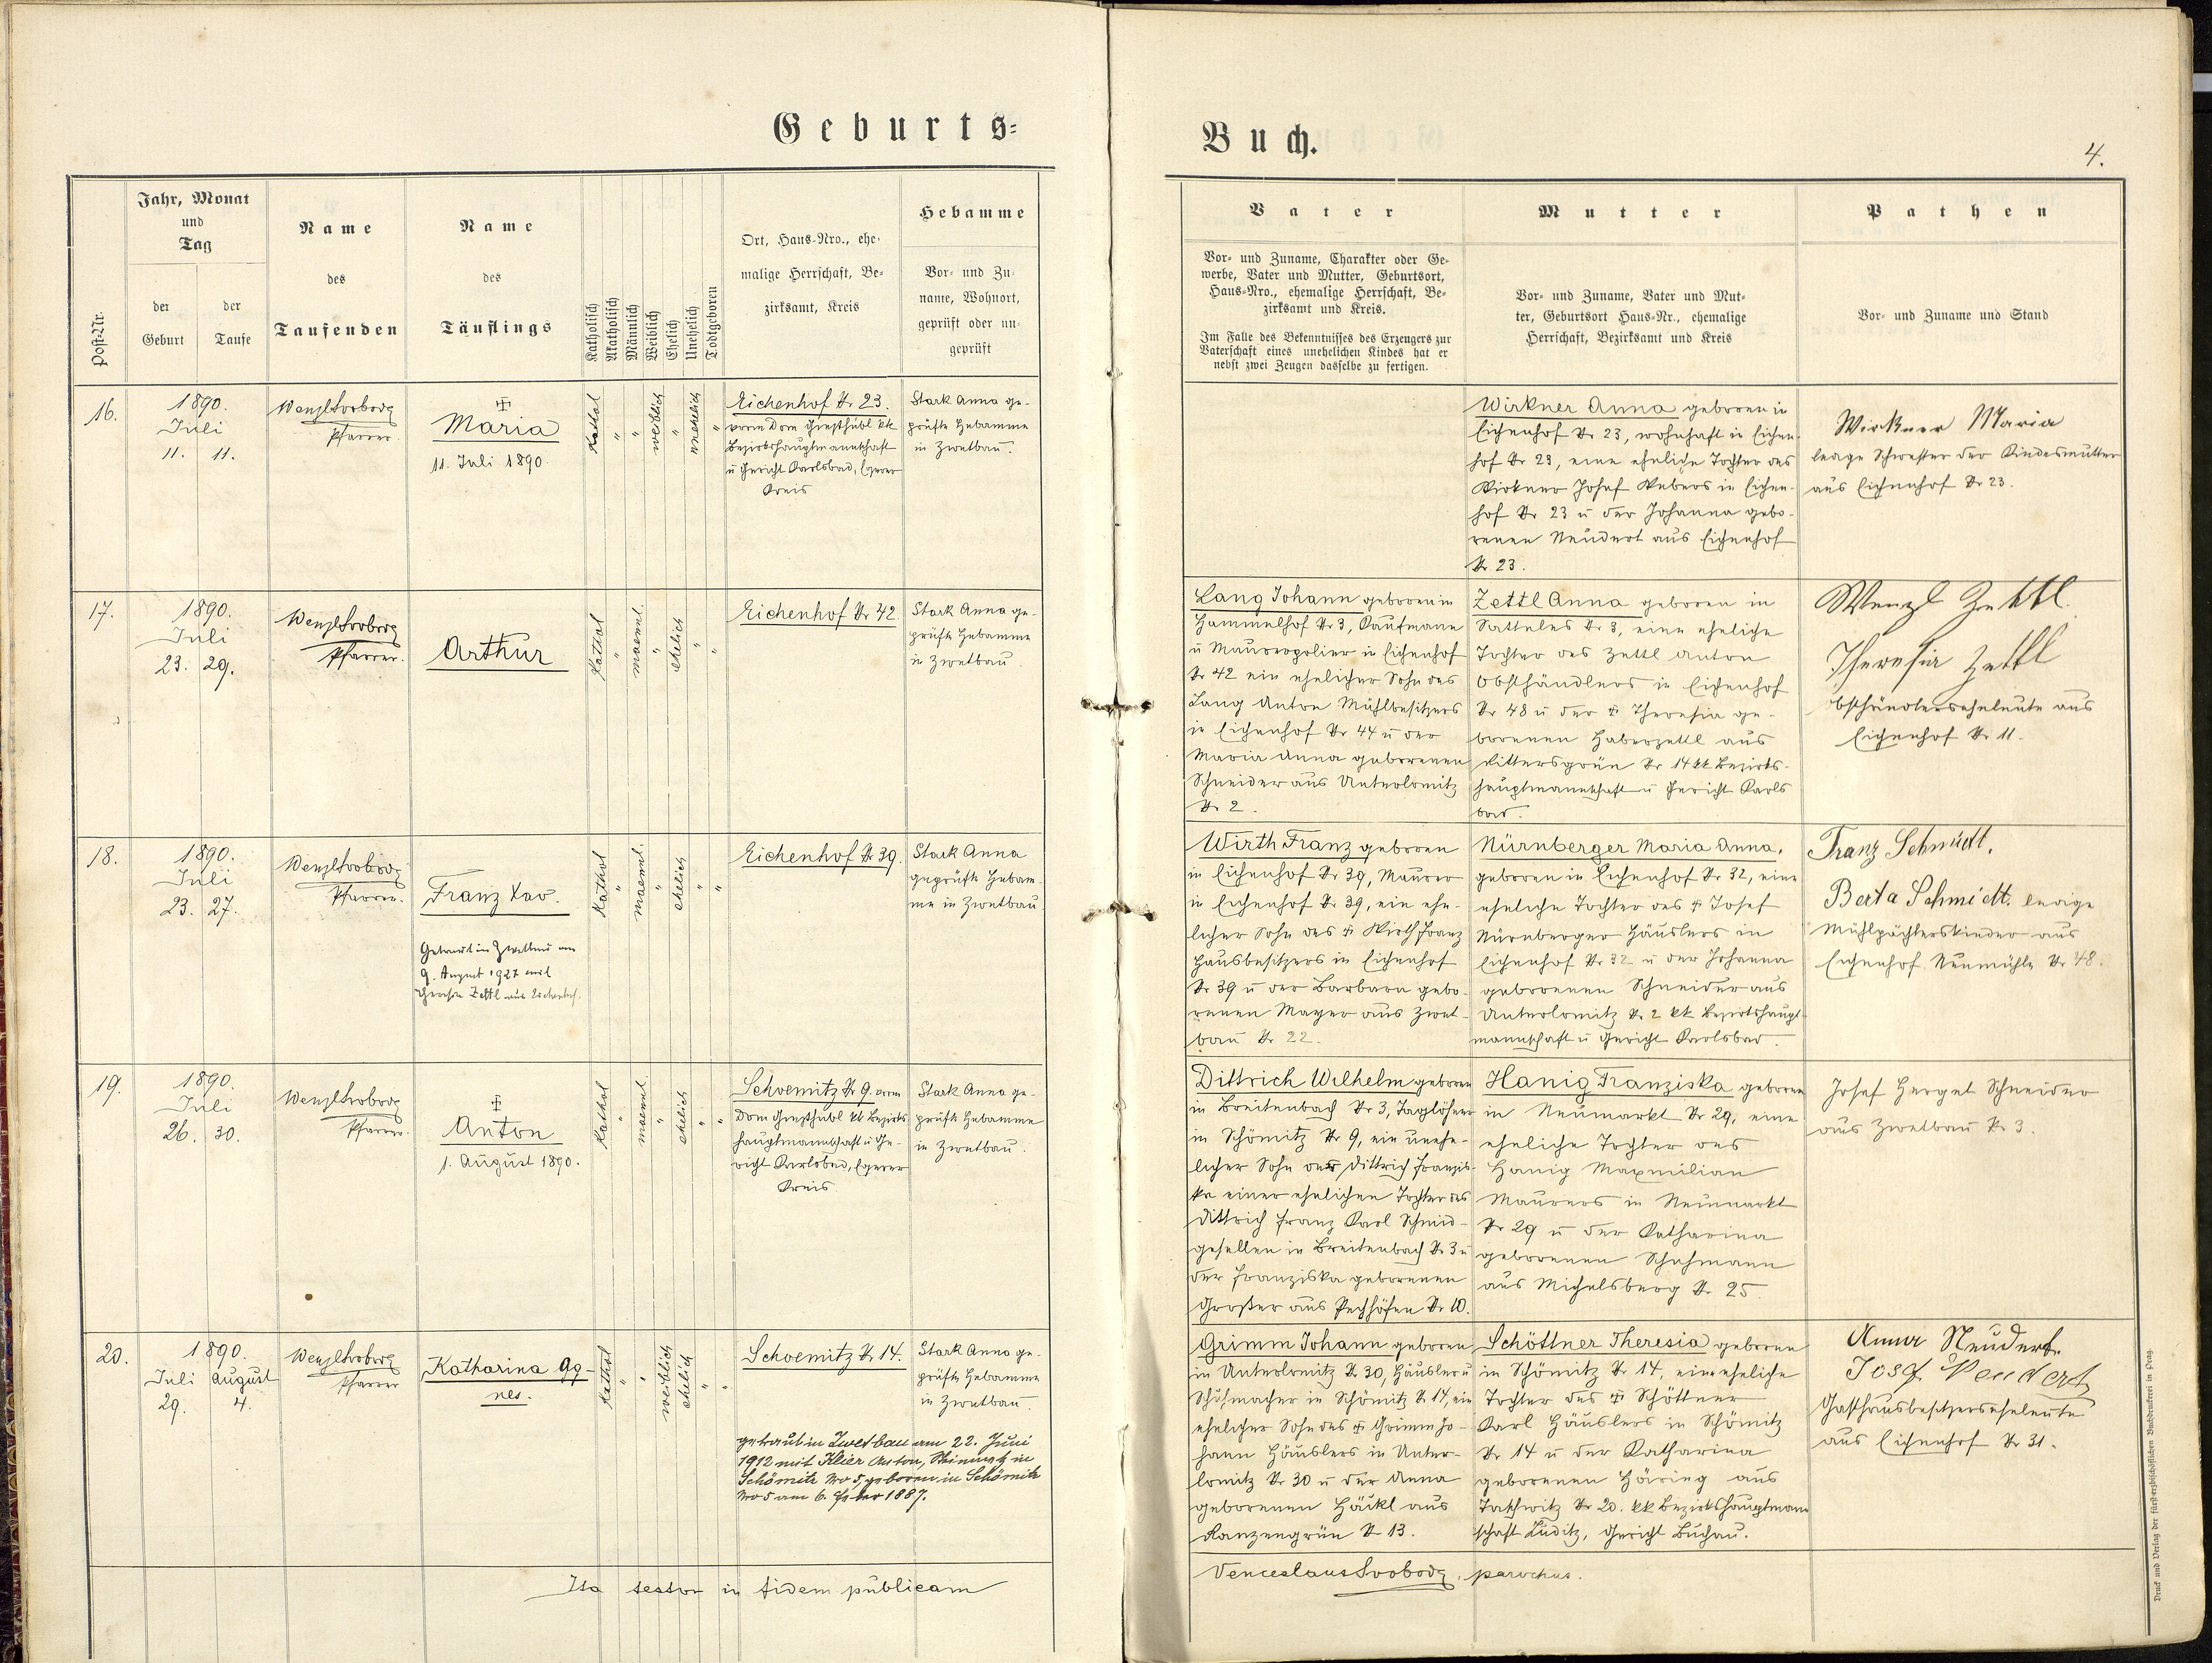 Geburts-
Buch.
4.
Post-Nr.
Jahr, Monat
und
Tag
der
Geburt
der
Taufe
Name
des
Taufenden
Name
des
Täuflings
Katholisch
Akatholisch
Männlich
Weiblich
Ehelich
Unehelich
Todtgeboren
Ort, Haus-Nro., ehe-
malige Herrschaft, Be-
zirksamt, Kreis
Hebamme
Vor- und Zu-
name, Wohnort,
geprüft oder un-
geprüft
Vater
Vor- und Zuname, Charakter oder Ge-
werbe, Vater und Mutter, Geburtsort,
Haus-Nro., ehemalige Herrschaft, Be-
zirksamt und Kreis.
Im Falle des Bekenntnisses des Erzeugers zur
Vaterschaft eines unehelichen Kindes hat er
nebst zwei Zeugen dasselbe zu fertigen.
Mutter
Vor- und Zuname, Vater und Mut-
ter, Geburtsort Haus-Nr., ehemalige
Herrschaft, Bezirksamt und Kreis
Pathen
Vor- und Zuname und Stand
16.
1890.
Juli
11. 11.
Wenzl Svoboda
Pfarrer.
Maria
11. Juli 1890.
Kathol
"
"
weiblich
"
unehelich
"
Eichenhof Nr 23.
vorm Dom Gießhübl kk
Bezirkshauptmannschaft
u Gericht Karlsbad, Egerer
Kreis
Stark Anna ge-
prüfte Hebamme
in Zwetbau.
Wirkner Anna geboren in
Eichenhof Nr 23, wohnhaft in Eichen-
hof Nr 23, eine eheliche Tochter des
Wirkner Josef Webers in Eichen-
hof Nr 23 u der Johanna gebo-
renen Neudert aus Eichenhof
Nr 23.
Wirkner Maria
ledige Schwester der Kindesmutter
aus Eichenhof Nr 23.
17.
1890.
Juli
23. 29.
Wenzl Svoboda
Pfarrer.
Arthur
Kathol
"
maennl.
"
ehelich
"
"
Eichenhof Nr 42
Stark Anna ge-
prüfte Hebamme
in Zwetbau
Lang Johann geboren in
Hammelhof Nr 3, Kaufmann
u Maurerpolier in Eichenhof
Nr 42 ein ehelicher Sohn des
Lang Anton Mühlbesitzers
in Eichenhof Nr 44 u der
Maria Anna geborenen
Schneider aus Unterlomitz
Nr 2.
Zettl Anna geboren in
Satteles Nr 3, eine eheliche
Tochter des Zettl Anton
Obsthändlers in Eichenhof
Nr 48 u der † Theresia ge-
borenen Haberzettl aus
Rittersgrün Nr 14 kk Bezirks-
hauptmannschaft u Gericht Karls
bad.
Wenzl Zettl
Theresia Zettl
Obsthändlerseheleute aus
Eichenhof Nr 11.
18.
1890.
Juli
23. 27.
Wenzl Svoboda
Pfarrer.
Franz Xav.
Getraut in Zwetbau am
9. August 1927 mit
Theresia Zettl aus Eichenhof.
Kathol
"
maennl.
"
ehelich
"
"
Eichenhof Nr 39.
Stark Anna
geprüfte Hebam-
me in Zwetbau
Wirth Franz geboren
in Eichenhof Nr 39, Maurer
in Eichenhof Nr 39, ein ehe-
licher Sohn des † Wirth Franz
Hausbesitzers in Eichenhof
Nr 39 u der Barbara gebo-
renen Mayer aus Zwet-
bau Nr 22.
Nürnberger Maria Anna,
geboren in Eichenhof Nr 32, eine
eheliche Tochter des † Josef
Nürnberger Häuslers in
Eichenhof Nr 32 u der Johanna
geborenen Schneider aus
Unterlomitz Nr 2 kk Bezirkshaupt-
mannschaft u Gericht Karlsbad.
Franz Schmidt.
Berta Schmidt. ledige
Mühlpächterskinder aus
Eichenhof Neumühle Nr 48.
19.
1890.
Juli
26. 30.
Wenzl Svoboda
Pfarrer.
Anton
1. August 1890.
Kathol
"
maennl
"
ehelich
"
"
Schoemitz Nr 9. vorm
Dom Gießhübl kk Bezirks
hauptmannschaft u Ge-
richt Karlsbad, Egerer
Kreis
Stark Anna ge-
prüfte Hebamme
in Zwetbau.
Dittrich Wilhelm geboren
in Breitenbach Nr 3, Taglöhner
in Schömitz Nr 9, ein unehe-
licher Sohn der Dittrich Franzis-
ka einer ehelichen Tochter des
Dittrich Franz Karl Schmid-
gesellen in Breitenbach Nr 3 u
der Franziska geborenen
Großer aus Pechhöfen Nr 10.
Hanig Franziska geboren
in Neumarkt Nr 29, eine
eheliche Tochter des
Hanig Maxmilian
Maurers in Neumarkt
Nr 29 u der Katharina
geborenen Schuhmann
aus Michelsberg Nr 25.
Josef Herget Schneider
aus Zwetbau Nr 3.
20.
1890.
Juli August
29. 4.
Wenzl Svoboda
Pfarrer
Katharina Ag-
nes.
Kathol
"
"
weiblich
ehelich
"
"
Schoemitz Nr 14.
getraut in Zwetbau am 22. Juni
1912 mit Klier Anton, in
Schömitz No 5, geboren in Schömitz
No 5 am 6. 1887.
Stark Anna ge-
prüfte Hebamme
in Zwetbau.
Grimm Johann geboren
in Unterlomitz Nr 30, Häusler u
Schuhmacher in Schömitz Nr 14, ein
ehelicher Sohn des † Grimm Jo-
hann Häuslers in Unter-
lomitz Nr 30 u der Anna
geborenen Häckl aus
Ranzengrün Nr 13.
Schöttner Theresia geboren
in Schömitz Nr 14, eine eheliche
Tochter des † Schöttner
Karl Häuslers in Schömitz
Nr 14 u der Katharina
geborenen Häring aus
Taschwitz Nr 20. kk Bezirkshauptmann
schaft Luditz, Gericht Buchau.
Anna Neudert.
Josef Neudert
Gasthausbesitzerseheleute
aus Eichenhof Nr 31.
Ita testor in fidem publicam
Venceslaus Svoboda, parochus.
Druck und Verlag der fürsterzbischöflichen Buchdruckerei in Prag.